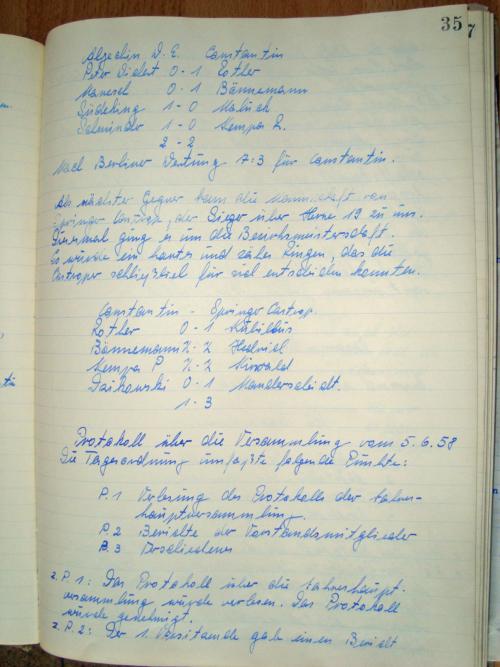 35
7
Aljechin W.E. Constantin
Peter Dickert 0-1 Rother
Manesel 0-1 Bönnemann
Südeking 1-0 Malich
Schwinder 1-0 Kempa R.
2-2
Nach Berliner Wertung 7:3 für Constantin.
Als nächster Gegner kam die Mannschaft von
Springer Castrop, der Sieger über Herne 19 zu uns.
Diesmal ging es um die Bezirksmeisterschaft.
Es wurde ein hartes und zähes Ringen, das die
Castroper schließlich für sich entscheiden konnten.
Constantin - Springer Castrop.
Rother 0-1
Bönnemann ½-½
Kempa P. ½-½
0-1 Manderscheidt.
1-3
Protokoll über die Versammlung vom 5.6.58
Die Tagesordnung umfaßte folgende Punkte:
P.1 Verlesung des Protokolls der Jahres-
hauptversammlung.
P.2 Berichte der Vorstandsmitglieder
P.3 Verschiedenes
z.P.1: Das Protokoll über die Jahreshaupt-
versammlung wurde verlesen. Das Protokoll
wurde genehmigt.
z.P.2: Der 1. Vorsitzende gab einen Bericht